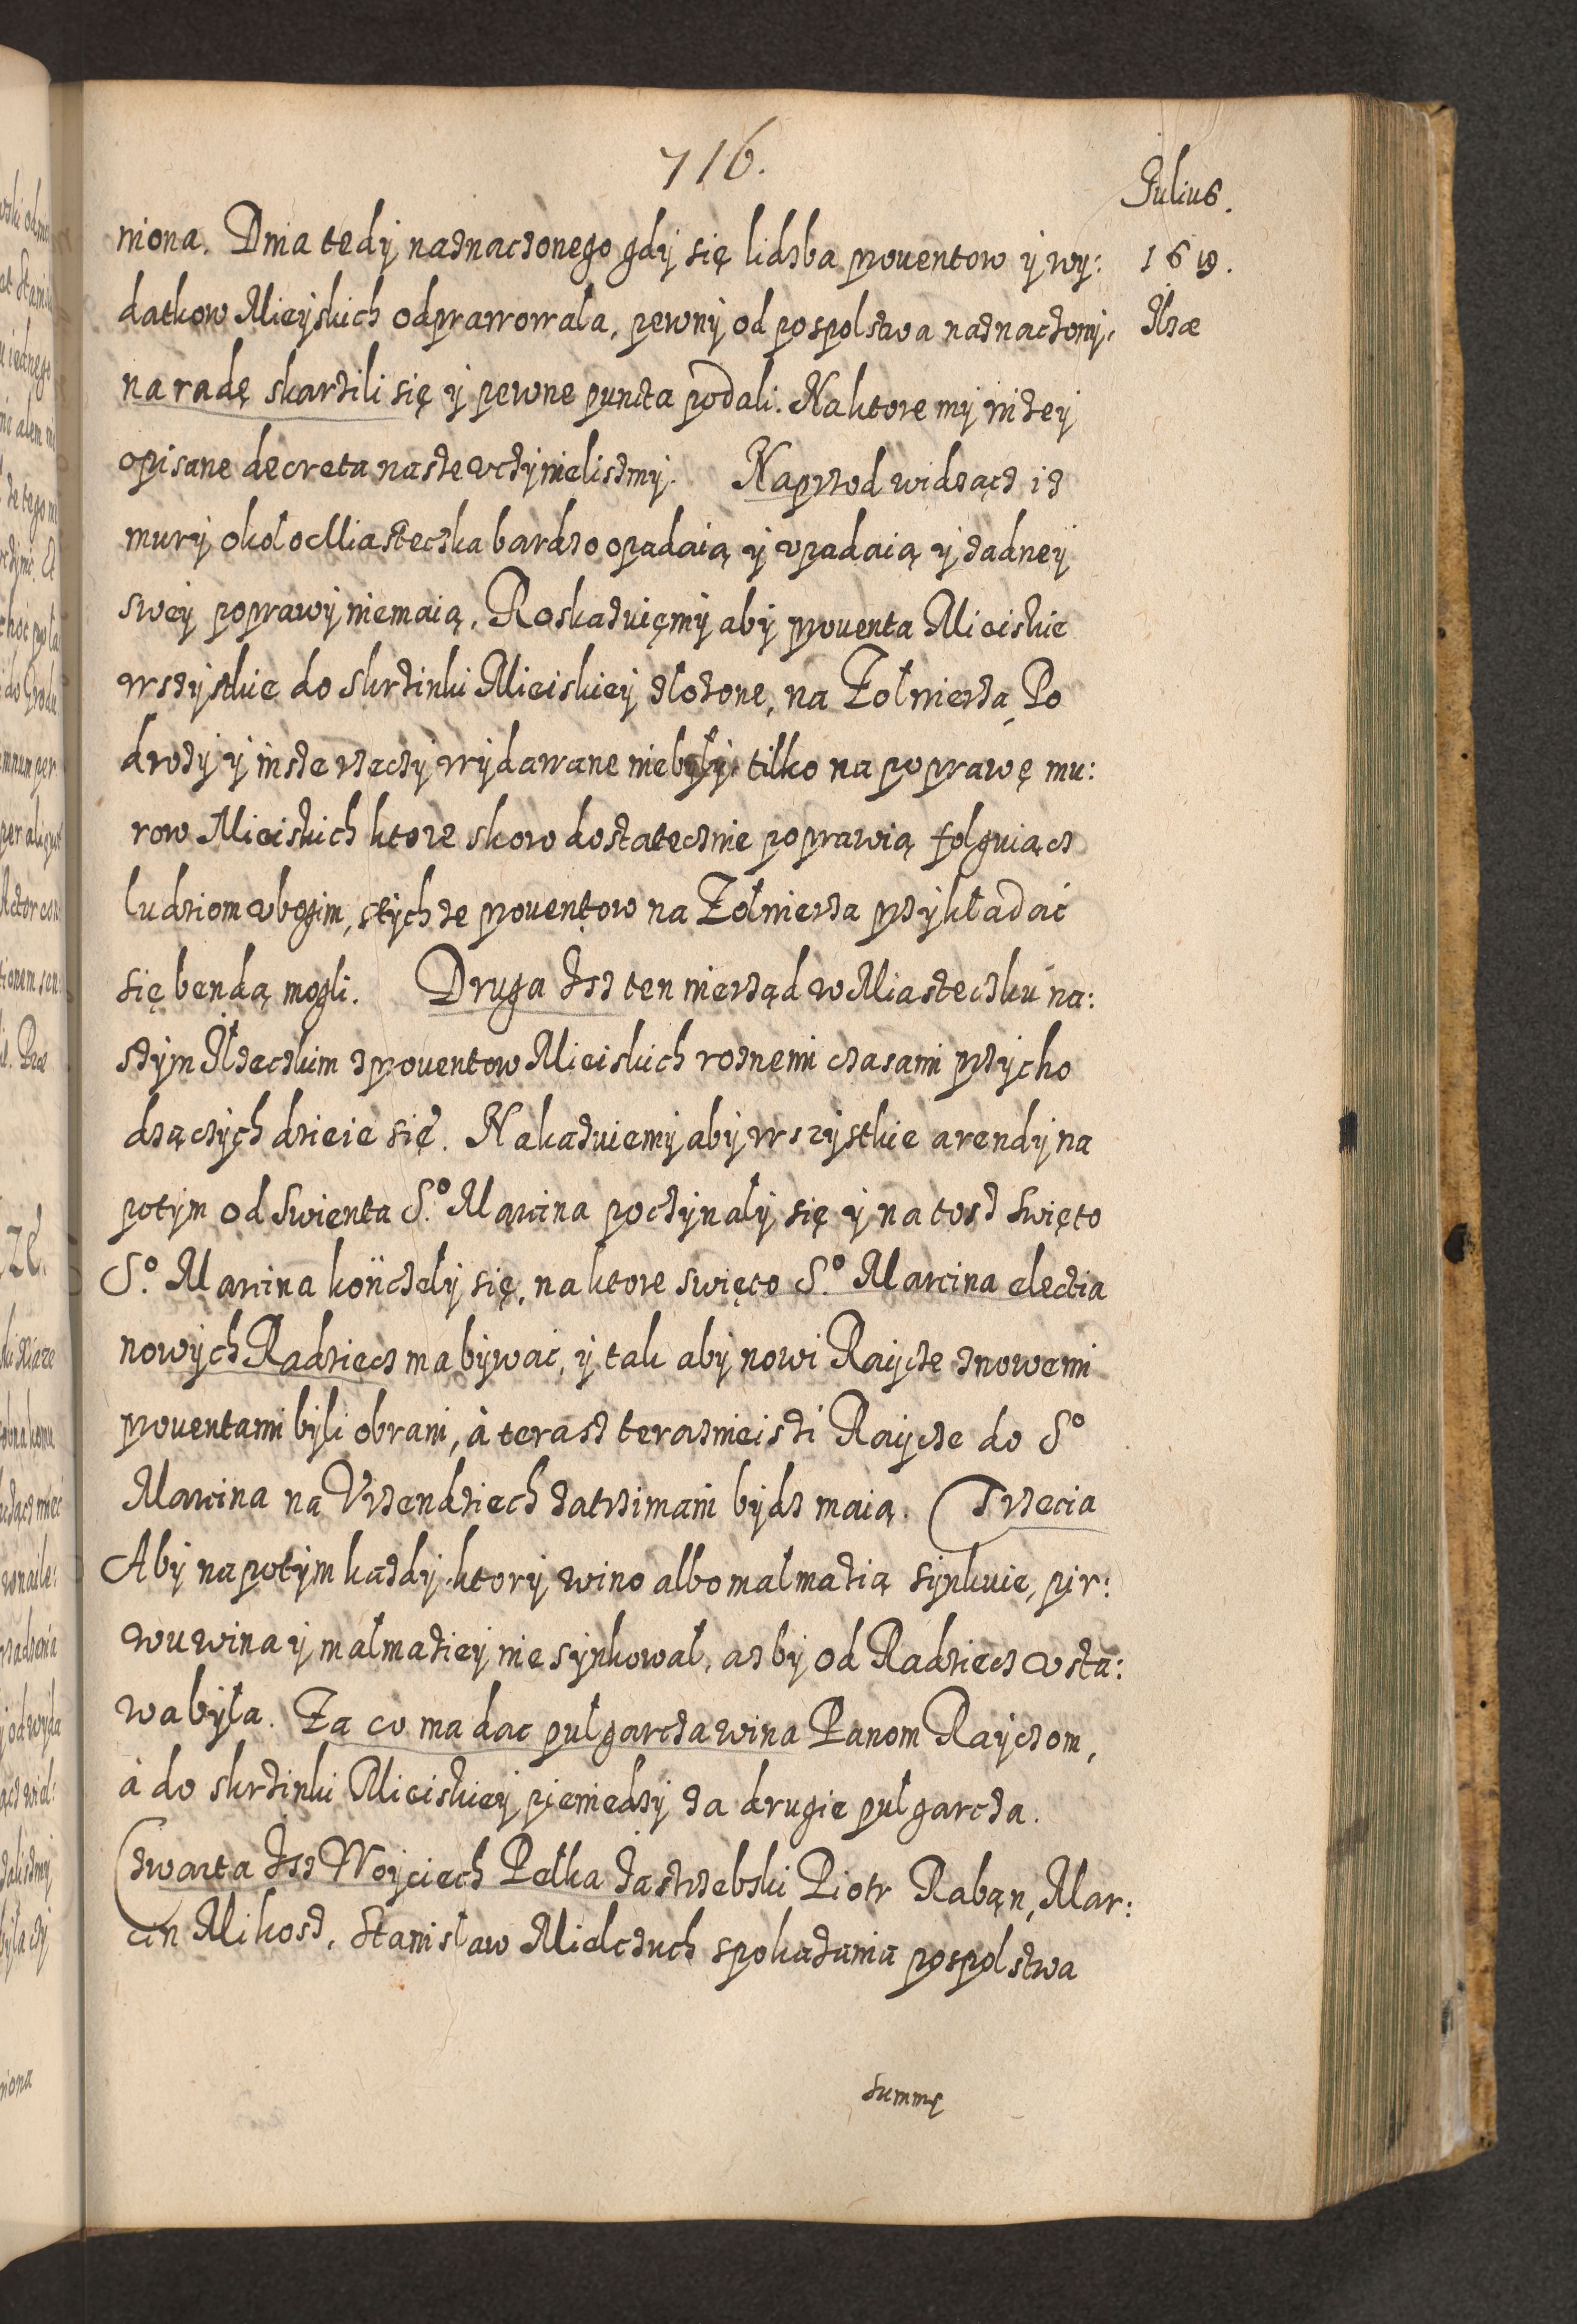 716.
Julius.
niona. Dnia tedÿ naznaczonego gdÿ się lidzba prouentow ÿ wy:
1619.
datkow Mieÿskich odprawowala, pewnÿ od pospolstwa naznaczonÿ,
Ilzæ
na radę skarzili się ÿ pewne puncta podali. Na ktore mÿ nizeÿ
opisane decreta nasze vczÿnielismÿ. Naprzod widzącz iz
murÿ około Miasteczka bardzo opadaią ÿ vpadaią ÿ zadneÿ
sweÿ poprawÿ niemaią, Roskazuięmÿ abÿ prouenta Mieiskie
wszÿstkie do Skrzinki Mieiskieÿ złozone, na Zołnierza Po
drozÿ ÿ insze rzeczÿ wÿdawane niebÿłÿ, tilko na poprawę mu:
row Mieiskich ktore skoro dostatecznie poprawią folguiącz
ludziom vbogim, stÿch ze prouentow na Zołnierza przÿkładać
się bendą mogli. Druga Isz ten nierząd w Miasteczku na:
szÿm Ilzeczkim z prouentow Mieiskich roznemi czasami przÿcho
dzączÿch dzieie się. Nakazuiemÿ abÿ wszystkie arendÿ na
potÿm od Swienta S.º Marcina poczÿnalÿ się ÿ na tosz Swięto
S.º Marcina kończelÿ się, na ktore swięto S.º Marcina electia
nowÿch Radziecz ma bÿwać, ÿ tak abÿ nowi Raÿcze z nowemi
prouentami bÿli obrani, à terasz terazmieiszi Raÿcze do Sº
Marcina na Vrzendziech zatrzimani bÿdz maią. Trzecia
Abÿ napotÿm kazdÿ ktorÿ wino albo malmazią sÿnkuie, pir:
wu wina ÿ malmazieÿ nie sÿnkował, az bÿ od Radziecz vsta:
wa bÿła. Za co ma dac pulgarcza wina Panom Raÿczom,
à do skrzinki Mieiskieÿ pieniedzÿ za drugie pul garcza.
Czwarta Isz Woÿciech Pełka Jastrzebski Piotr Raban, Mar:
cin Mikosz, Stanisław Mielczuch spokazania pospolstwa
summę